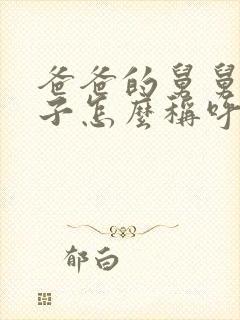 爸爸的舅舅
子怎麼稱呼
郁白